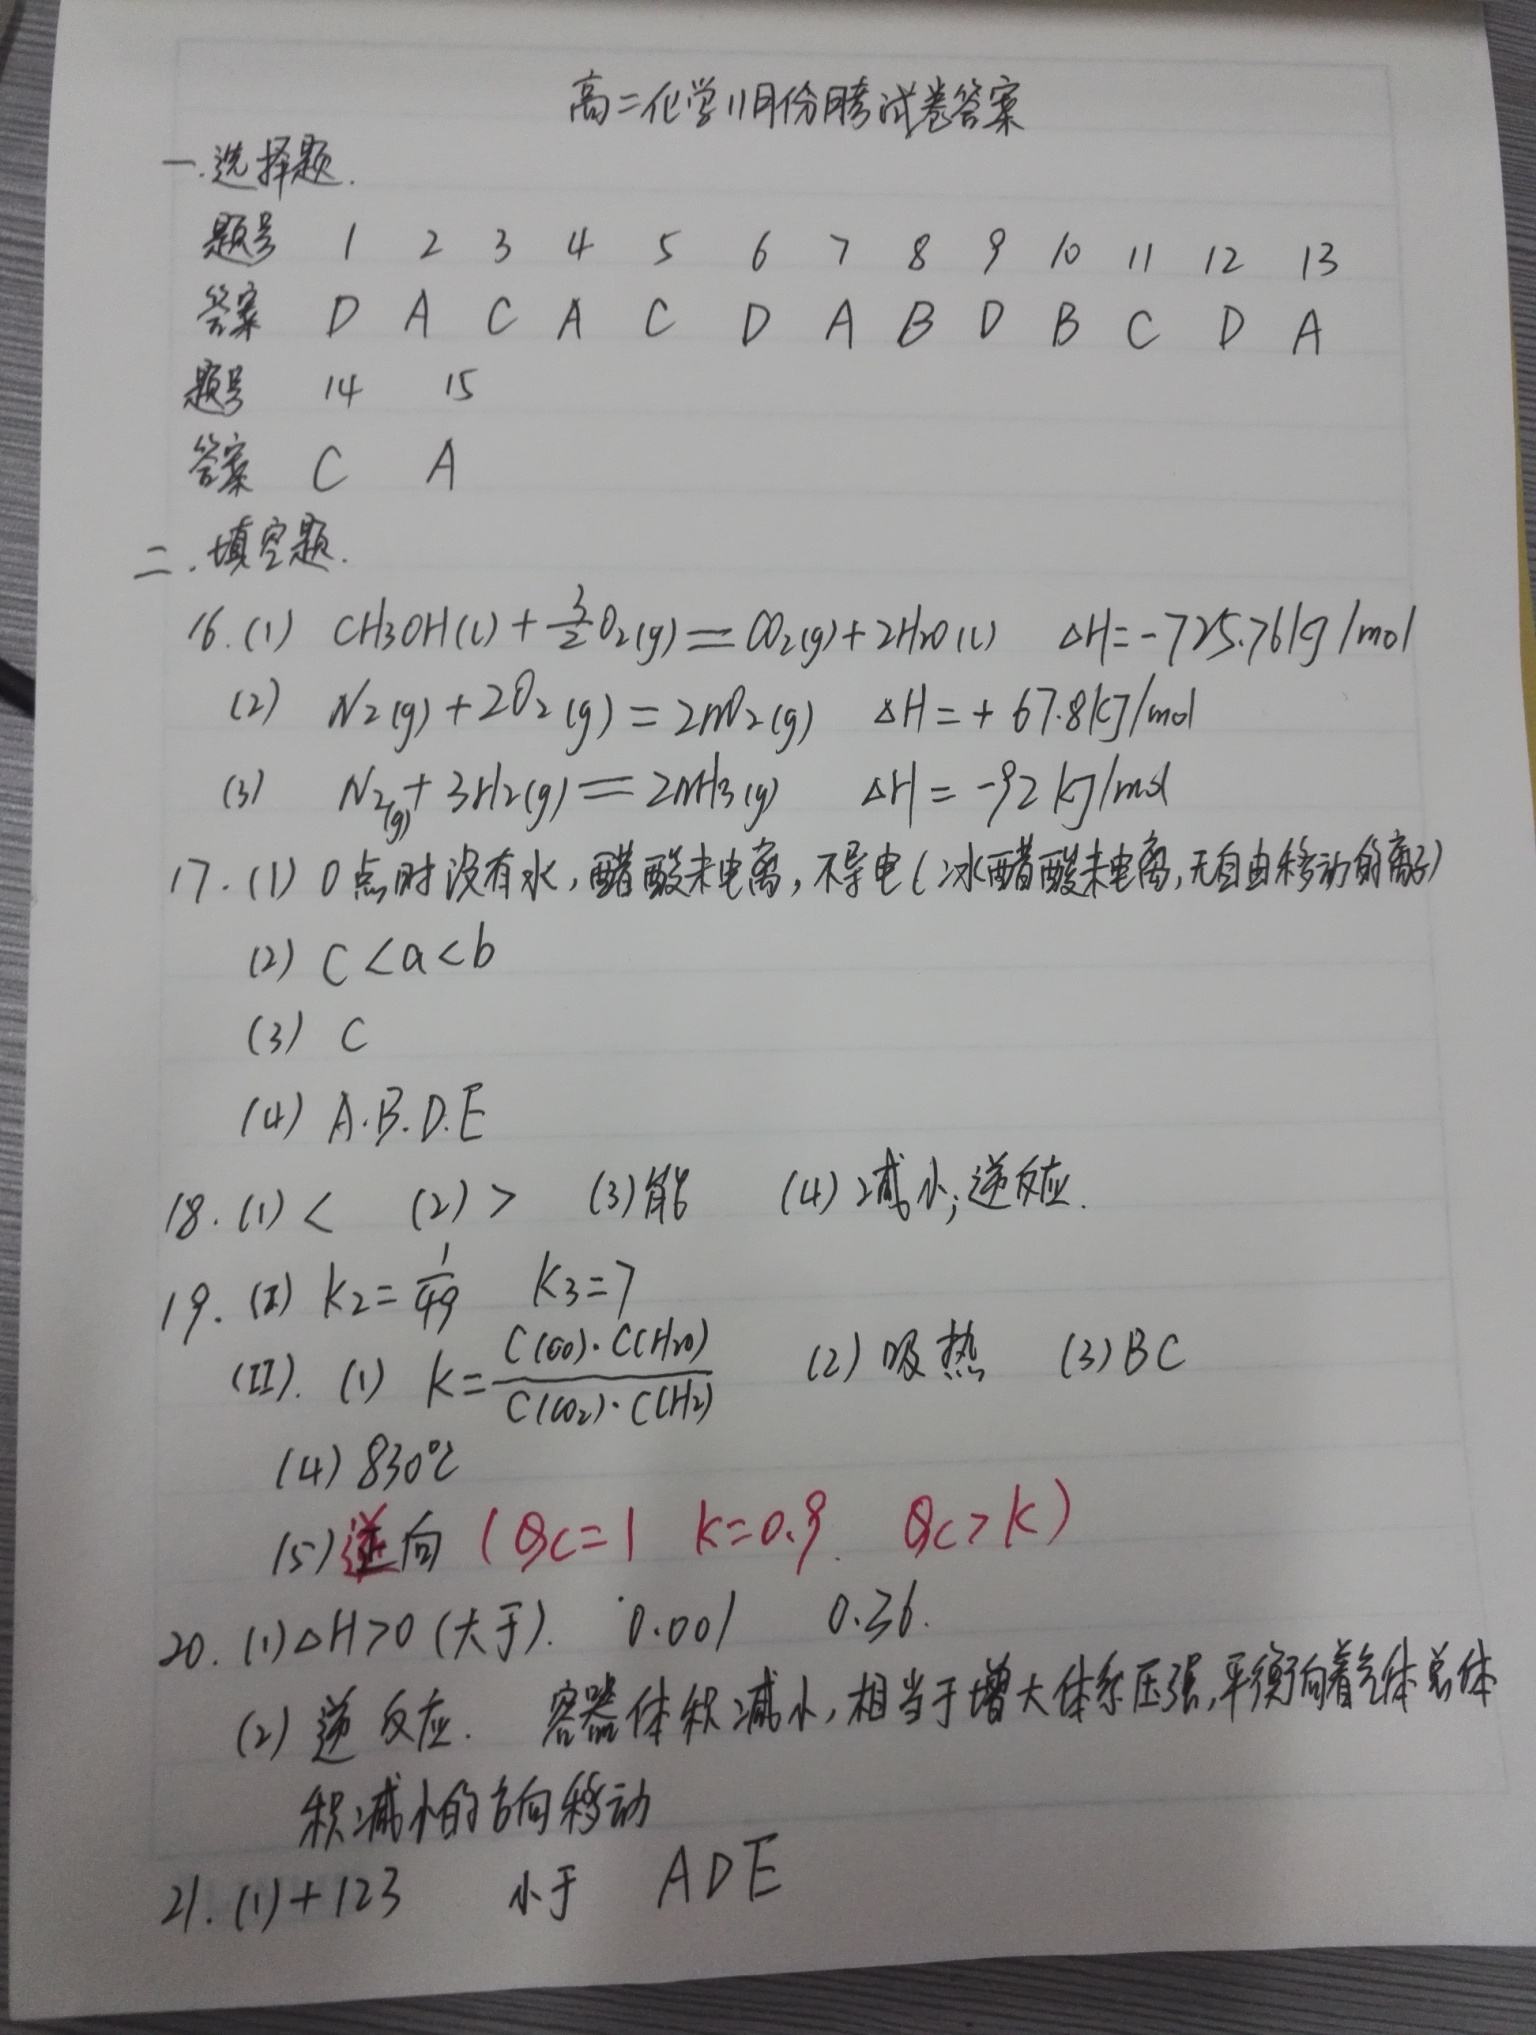 高二化学11月份月考试卷答案
一.选择题.
题号 1 2 3 4 5 6 7 8 9 10 11 12 13
答案 D A C A C D A B D B C D A
题号 14 15
答案 C A
二.填空题.
16.(1) CH3OH(l)+3/2O2(g)=CO2(g)+2H2O(l) △H=-725.76kJ/mol
(2) N2(g)+2O2(g)=2NO2(g) △H=+67.8kJ/mol
(3) N2(g)+3H2(g)=2NH3(g) △H=-92kJ/mol
17.(1) 0点时没有水,醋酸未电离,不导电(冰醋酸未电离,无自由移动的离子)
(2) c<a<b
(3) C
(4) A.B.D.E
18.(1)< (2)> (3)能 (4)减小;逆反应.
19.(I) K2=1/49 K3=7
(II).(1) K=C(CO)·C(H2O)/C(CO2)·C(H2) (2)吸热 (3)BC
(4)830℃
(5)逆向(Qc=1 K=0.9 Qc>K)
20.(1)△H>0(大于). 0.001 0.36.
(2)逆反应. 容器体积减小,相当于增大体系压强,平衡向着气体总体
积减小的方向移动
21.(1)+123 小于 ADE